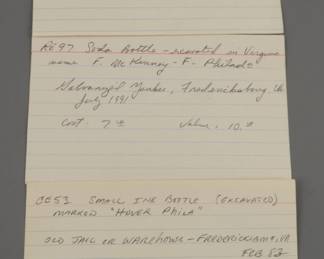 RE97 Soda Bottle - excavated in Virginia
name F. McKinney - F - Philada
Galvanized Yankee, Fredericksburg, Va
July 1991
Cost. 7.00 Value. 10.00
CE53 SMALL INK BOTTLE (EXCAVATED)
MARKED "HOVER PHILA"
OLD JAIL OR WAREHOUSE - FREDERICKSBURG, VA
FEB 82